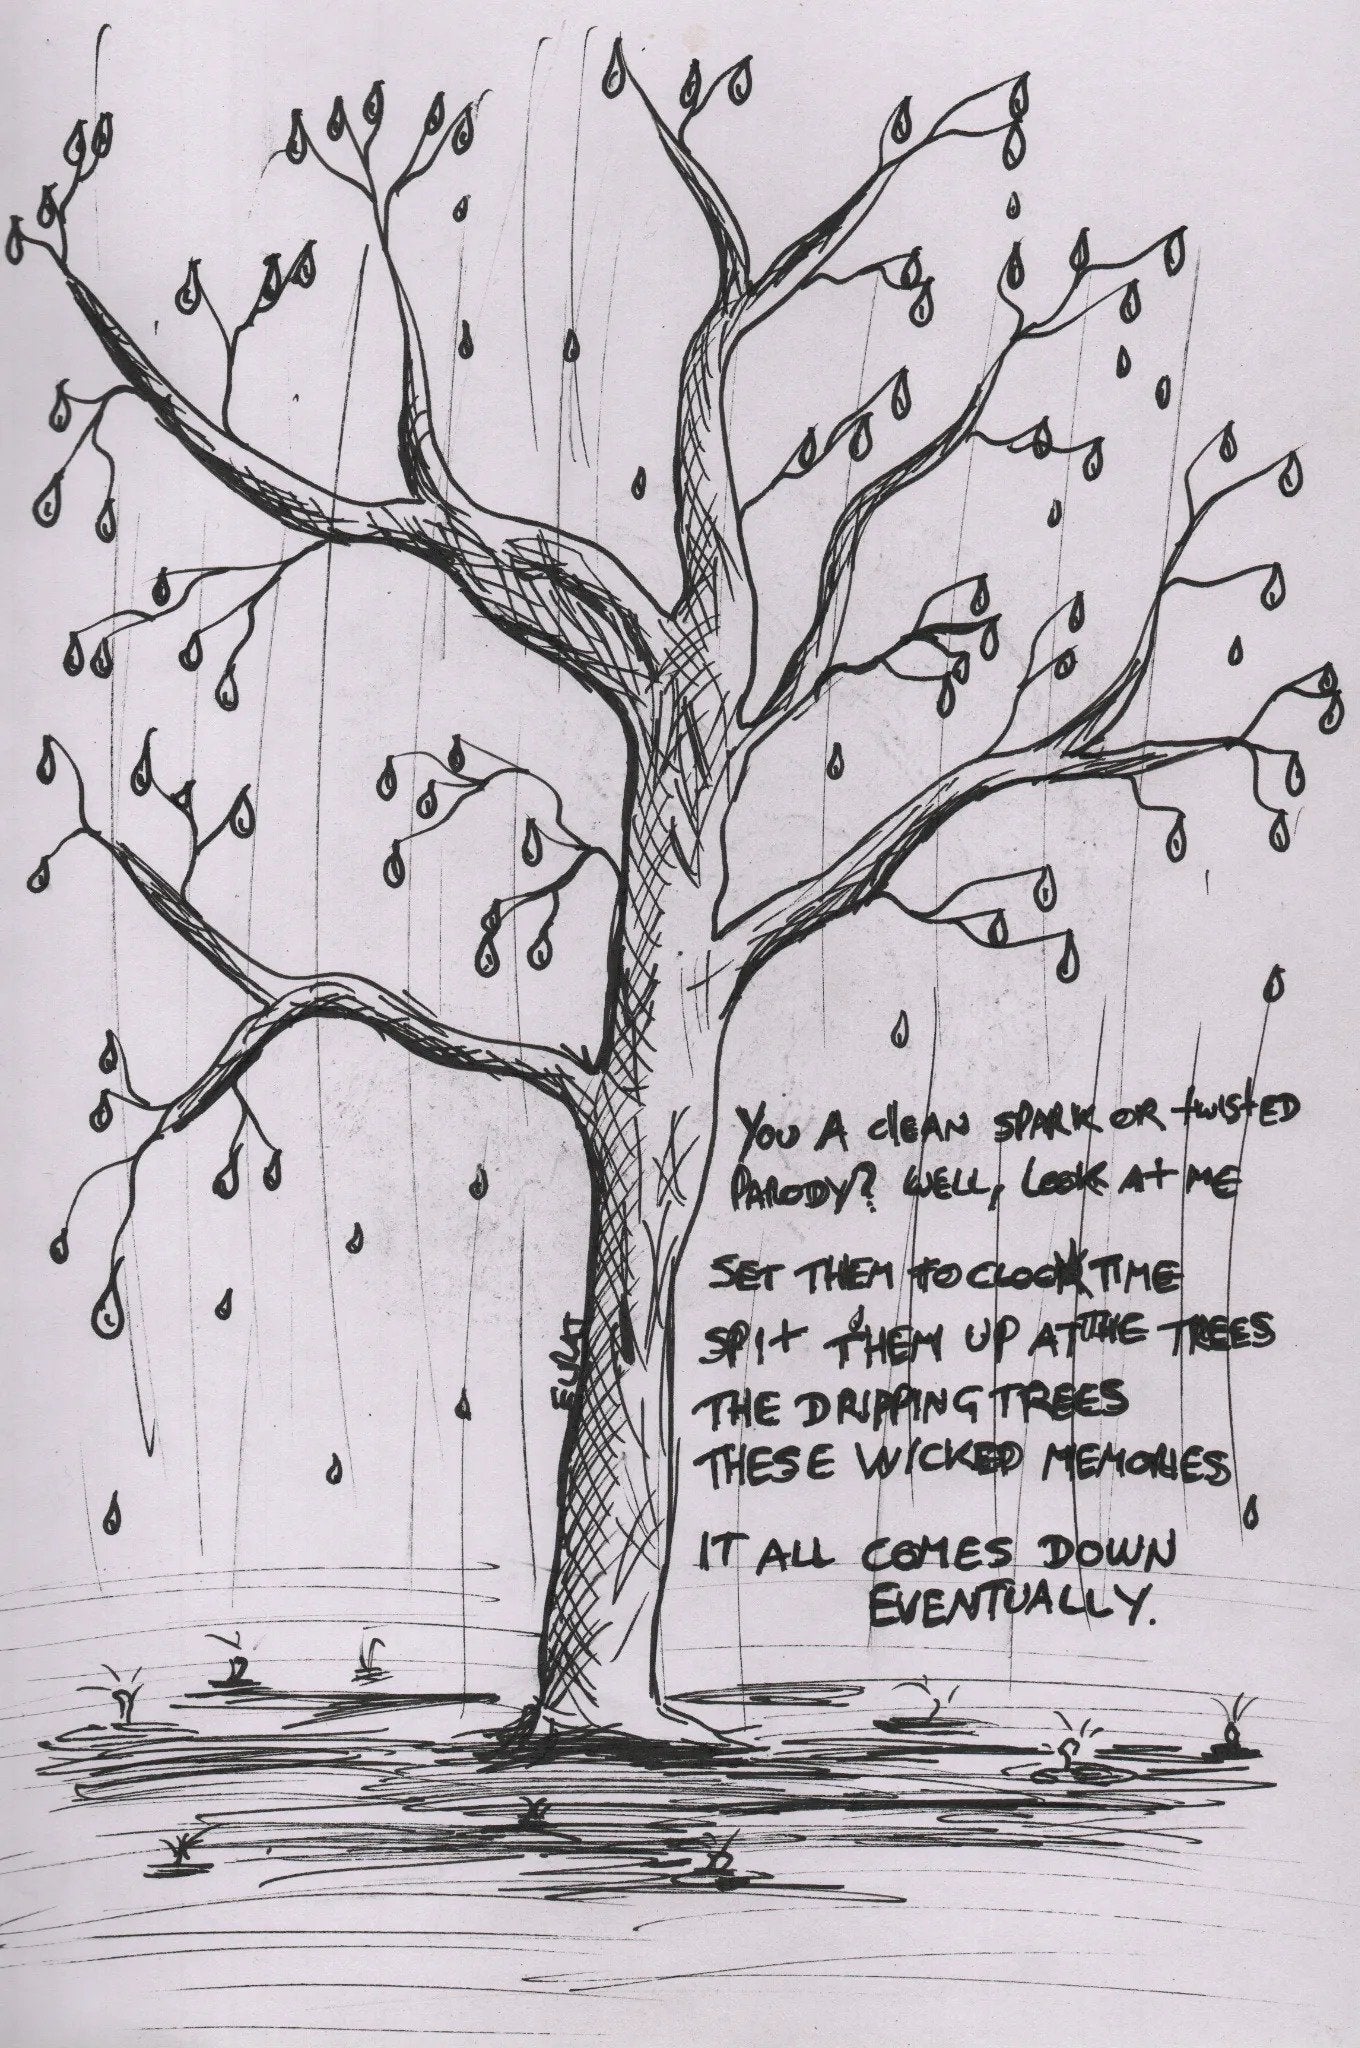 YOU A CLEAN SPARK OR twiSTED
PARODY? WELL, LOOK At ME
SET THEM TO CLOCK TIME
SPIt THEM UP AT THE TREES
THE DRIPPING TREES
THESE WICKED MEMORIES
IT ALL COMES DOWN
EVENTUALLY.